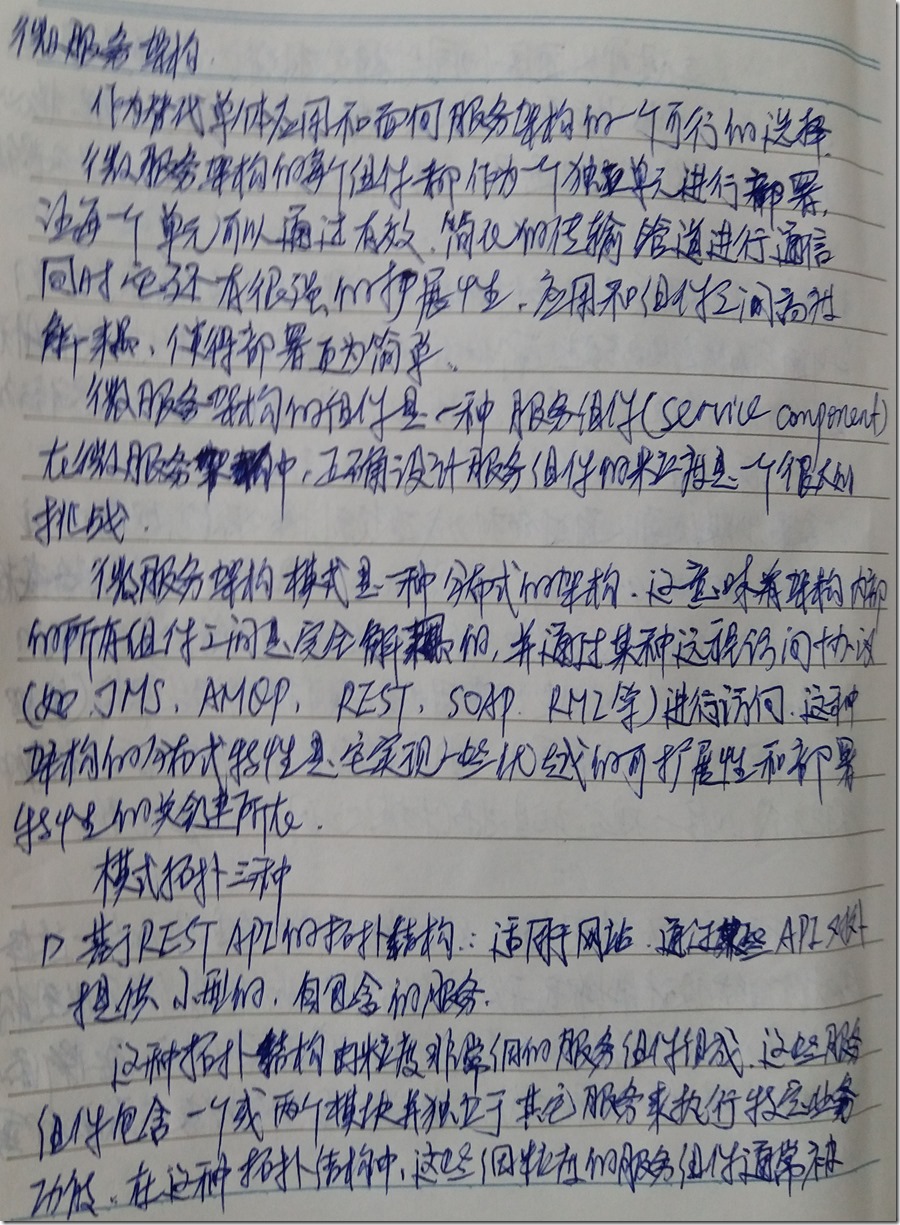 微服务架构.
作为替代单体应用和面向服务架构的一个可行的选择.
微服务架构的每个组件都作为一个独立单元进行部署,
让每一个单元可以通过有效、简化的传输管道进行通信
同时它还有很强的扩展性,应用和组件之间高度
解耦,使得部署更为简单、
微服务架构的组件是一种服务组件(service component)
在微服务架构中,正确设计服务组件的粒度是一个很大的
挑战.
微服务架构模式是一种分布式的架构.这意味着架构内部
的所有组件之间是完全解耦的,并通过某种远程访问协议
(如、JMS, AMQP, REST, SOAP. RMI等)进行访问.这种
架构的分布式特性是它实现一些优越的可扩展性和部署
特性的关键所在.
模式拓扑三种
1> 基于REST API的拓扑结构:适用于网站.通过某些API对外
提供小型的、自包含的服务.
这种拓扑结构由粒度非常细的服务组件组成.这些服务
组件包含一个或两个模块并独立于其它服务来执行特定业务
功能、在这种拓扑结构中,这些细粒度的服务组件通常被